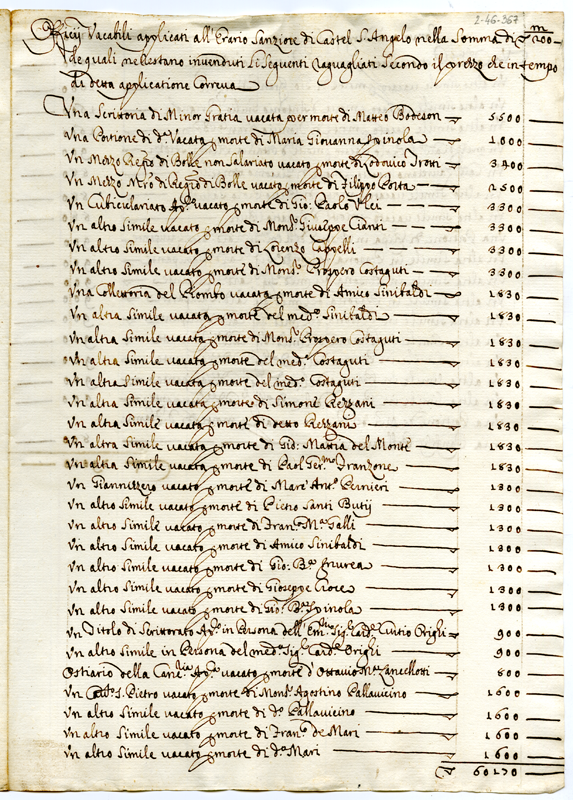 2-46-367
Vacabili applicati all'Erario Sanziore di Castel S. Angelo nella Somma di 200
de quali ne restano invenduti li seguenti ragguagliati secondo il prezzo che in tempo
di detta applicatione correva
Una Scrittoria di Minor Gratia vacata per morte di Matteo Bodeson 5500
Una Portione di d.a Vacata p morte di Maria Giovanna Spinola 1000
Un Mezzo Reg.ro di Bolle non salariato vacato p morte di Lodovico 3400
Un Mezzo di Reg.ro di Bolle vacato p morte di Filippo Porta 2500
Un Cubiculariato Ap.co vacato p morte di Gio: Paolo 3300
Un altro simile vacato p morte di Mons.r Giuseppe Cianti 3300
Un altro simile vacato p morte di Lorenzo Cappelli 3300
Un altro simile vacato p morte di Mons.r Prospero Costaguti 3300
Una Collettoria del Piombo vacata p morte di Amico Sinibaldi 1830
Un altra simile vacata p morte del med.o Sinibaldi 1830
Un altra simile vacata p morte di Mons.r Prospero Costaguti 1830
Un altra simile vacata p morte del med.o Costaguti 1830
Un altra simile vacata p morte del med.o Costaguti 1830
Un altra simile vacata p morte di Simone Rezzani 1830
Un altra simile vacata p morte di detto Rezzani 1830
Un altra simile vacata p morte di Gio: Mattia del Monte 1830
Un altra simile vacata p morte di Paol Ger.mo Franzone 1830
Un Giannizzero vacato p morte di Marc' Ant.o Pernieri 1300
Un altro simile vacato p morte di Pietro Santi Butij 1300
Un altro simile vacato p morte di Fran.co M.a Galli 1300
Un altro simile vacato p morte di Amico Sinibaldi 1300
Un altro simile vacato p morte di Gio: B.a Invrea 1300
Un altro simile vacato p morte di Gioseppe Ciore 1300
Un altro simile vacato p morte di Gio: B.a Spinola 1300
Un Titolo di Scrittorato Ap.co in Persona dell' Em.mo Sig.r Card. Curtio Orighi 900
Un altro simile in Persona del med.o Sig.r Card. Orighi 900
Ostiario della Canc.ria Ap.ca vacato p morte d'Ottavio M.a Lancellotti 800
Un S. Pietro vacato p morte di Mons.r Agostino Pallavicino 1600
Un altro simile vacato p morte di d.o Pallavicino 1600
Un altro simile vacato p morte di Fran.co de Mari 1600
Un altro simile vacato p morte di d.o Mari 1600
60170